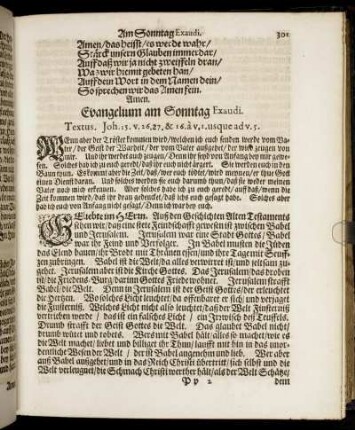 Am Sonntag Exaudi. 301
Amen/ das heist/ es werde wahr/
Stärck unsern Glauben immerdar/
Auff daß wir ja nicht zweiffeln dran/
Was wir hiemit gebeten han/
Auff dein Wort in dem Namen dein/
So sprechen wir das Amen fein.
Amen.
Evangelium am Sonntag Exaudi.
Textus. Joh. 15. v. 26, 27, & 16. à v. 1. usque ad v. 5.
WEnn aber der Tröster kommen wird/ welchen ich euch senden werde vom Va-
ter/ der Geist der Warheit/ der vom Vater außgehet/ der wird zeugen von
mir. Und ihr werdet auch zeugen/ Denn ihr seyd von Anfang bey mir gewe-
sen. Solches hab ich zu euch geredt/ daß ihr euch nicht ärgert. Sie werden euch in den
Bann thun. Es kommt aber die Zeit/ daß/ wer euch tödtet/ wird meynen/ er thue Gott
einen Dienst daran. Und solches werden sie euch darumb thun/ daß sie weder meinen
Vater noch mich erkennen. Aber solches habe ich zu euch geredt/ auff daß/ wenn die
Zeit kommen wird/ daß ihr dran gedencket/ daß ichs euch gesagt habe. Solches aber
hab ich euch von Anfang nicht gesagt/ Denn ich war bey euch.
GEliebte im HErrn. Auß den Geschichten Alten Testaments
sehen wir/ daß eine stete Feindschafft gewesen ist zwischen Babel
und Jerusalem. Jerusalem war eine Stadt Gottes/ Babel
war ihr Feind und Verfolger. In Babel musten die Jüden
das Elend bauen/ ihr Brodt mit Thränen essen/ und ihre Tage mit Seuff-
zen zubringen. Babel ist die Welt/ da alles verwirret ist/ und seltsam zu-
gehet. Jerusalem aber ist die Kirche Gottes. Das Jerusalem/ das droben
ist/ die Friedens-Burg/ darinn Gottes Friede wohnet. Jerusalem strafft
Babel/ die Welt. Denn in Jerusalem ist der Geist Gottes/ der erleuchtet
die Hertzen. Wo solches Liecht leuchtet/ da offenbaret er sich/ und verjaget
die Finsterniß. Welches Liecht nicht also leuchtet/ daß der Welt Finsterniß
vertrieben werde/ das ist ein falsches Liecht/ ein Irrwisch deß Teuffels.
Drumb strafft der Geist Gottes die Welt. Das glaubet Babel nicht/
drumb wütet und tobets. Wers mit Babel hält/ alles so machet/ wie es
die Welt machet/ liebet und billiget ihr Thun/ laufft mit hin in das unor-
dentliche Wesen der Welt/ der ist Babel angenehm und lieb. Wer aber
auß Babel außgehet/ und in das Reich Christi übertritt/ sich selbst und die
Welt verleugnet/ die Schmach Christi werther hält/ als der Welt Schätze/
P p 2 dem